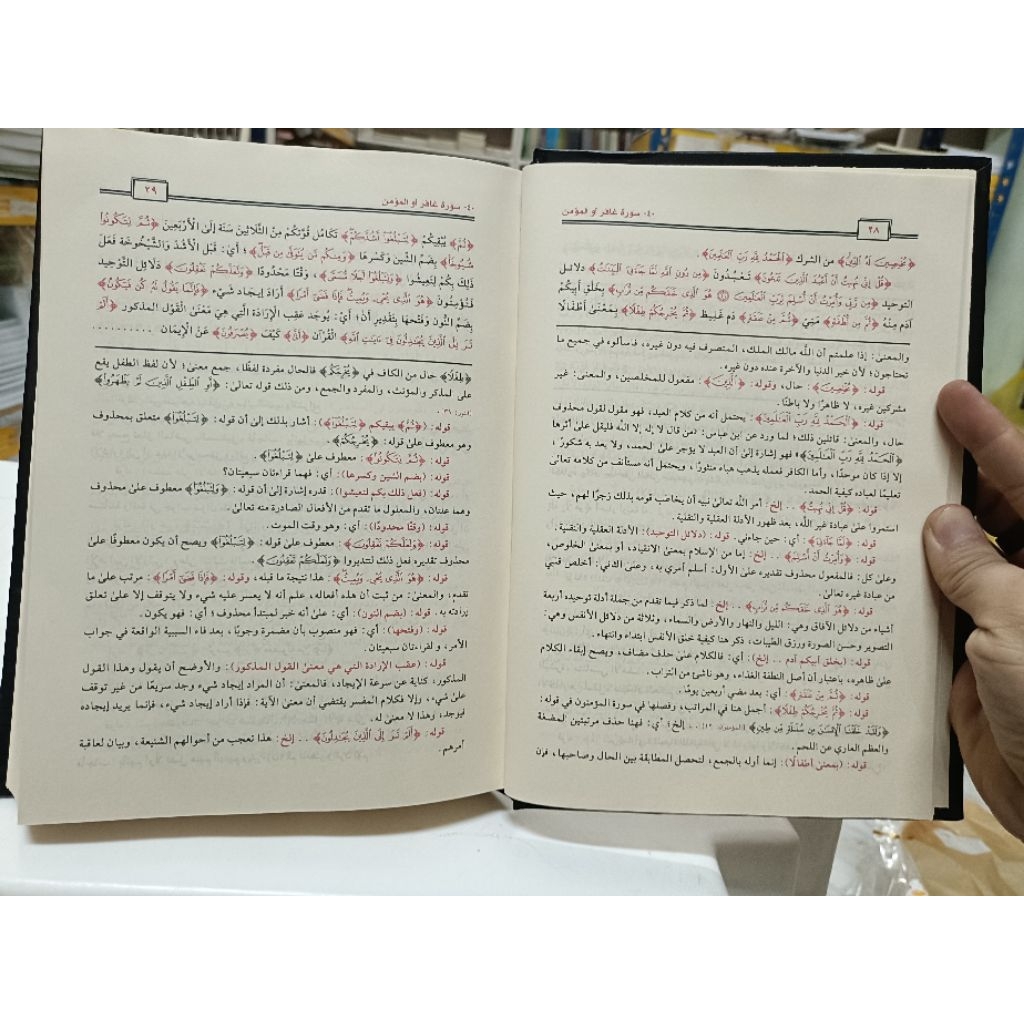 ٤٠- سورة غافر أو المؤمن
٢٨
﴿مُخْلِصِينَ لَهُ الدِّينَ﴾ من الشرك ﴿الْحَمْدُ لِلَّهِ رَبِّ الْعَالَمِينَ﴾ .
﴿قُلْ إِنِّي نُهِيتُ أَنْ أَعْبُدَ الَّذِينَ تَدْعُونَ﴾ تَعْبُدُونَ ﴿مِنْ دُونِ اللَّهِ لَمَّا جَاءَنِيَ الْبَيِّنَاتُ﴾ دلائل
التوحيد ﴿مِنْ رَبِّي وَأُمِرْتُ أَنْ أُسْلِمَ لِرَبِّ الْعَالَمِينَ ۝ هُوَ الَّذِي خَلَقَكُمْ مِنْ تُرَابٍ﴾ بِخَلْقِ أَبِيكُمْ
آدَمَ مِنْهُ ﴿ثُمَّ مِنْ نُطْفَةٍ﴾ مَنِيّ ﴿ثُمَّ مِنْ عَلَقَةٍ﴾ دَم غَلِيظ ﴿ثُمَّ يُخْرِجُكُمْ طِفْلًا﴾ بِمَعْنَىٰ أَطْفَالًا
والمعنىٰ: إذا علمتم أن اللّٰه مالك الملك، المتصرف فيه دون غيره، فاسألوه في جميع ما
تحتاجون؛ لأن خير الدنيا والآخرة عنده دون غيره.
قوله: ﴿مُخْلِصِينَ﴾: حال، وقوله: ﴿الدِّينَ﴾: مفعول للمخلصين، والمعنىٰ: غير
مشركين غيره، لا ظاهرًا ولا باطنًا.
قوله: ﴿الْحَمْدُ لِلَّهِ رَبِّ الْعَالَمِينَ﴾: يحتمل أنه من كلام العبد، فهو مقول لقول محذوف
حال، والمعنىٰ: قائلين ذلك؛ لما ورد عن ابن عباس: «من قال لا إله إلا اللّٰه فليقل علىٰ أثرها
﴿الْحَمْدُ لِلَّهِ رَبِّ الْعَالَمِينَ﴾» فهو إشارة إلىٰ أن العبد لا يؤجر علىٰ الحمد، ولا يعد شكورًا،
إلا إذا كان موحدًا، وأما الكافر فعمله يذهب هباء منثورًا، ويحتمل أنه مستأنف من كلامه تعالىٰ
تعليمًا لعباده كيفية الحمد.
قوله: ﴿قُلْ إِنِّي نُهِيتُ﴾ .. إلخ: أمر اللّٰه تعالىٰ نبيه أن يخاطب قومه بذلك زجرًا لهم، حيث
استمروا علىٰ عبادة غير اللّٰه، بعد ظهور الأدلة العقلية والنقلية.
قوله: ﴿لَمَّا جَاءَنِيَ﴾: أي: حين جاءني. قوله: (دلائل التوحيد): الأدلة العقلية والنقلية.
قوله: ﴿وَأُمِرْتُ أَنْ أُسْلِمَ﴾ .. إلخ: إما من الإسلام بمعنىٰ الانقياد، أو بمعنىٰ الخلوص،
وعلىٰ كل: فالمفعول محذوف تقديره علىٰ الأول: أسلم أمري به، وعلىٰ الثاني: أخلص قلبي
من عبادة غيره تعالىٰ.
قوله: ﴿هُوَ الَّذِي خَلَقَكُمْ مِنْ تُرَابٍ﴾ .. إلخ: لما ذكر فيما تقدم من جملة أدلة توحيده أربعة
أشياء من دلائل الآفاق وهي: الليل والنهار والأرض والسماء، وثلاثة من دلائل الأنفس وهي:
التصوير وحسن الصورة ورزق الطيبات، ذكر هنا كيفية خلق الأنفس ابتداء وانتهاء.
قوله: (بخلق أبيكم آدم .. إلخ): أي: فالكلام علىٰ حذف مضاف، ويصح إبقاء الكلام
علىٰ ظاهره، باعتبار أن أصل النطفة الغذاء، وهو ناشئ من التراب.
قوله: ﴿ثُمَّ مِنْ عَلَقَةٍ﴾: أي: بعد مضي أربعين يومًا.
قوله: ﴿ثُمَّ يُخْرِجُكُمْ طِفْلًا﴾: أجمل هنا في المراتب، وفصلها في سورة المؤمنون في قوله:
﴿وَلَقَدْ خَلَقْنَا الْإِنْسَانَ مِنْ سُلَالَةٍ مِنْ طِينٍ﴾ [المؤمنون: ١٢] .. إلخ؛ أي: فهنا حذف مرتبتين المضغة
والعظم العاري عن اللحم.
قوله: (بمعنىٰ أطفالًا): إنما أوله بالجمع، لتحصل المطابقة بين الحال وصاحبها، فإن
٤٠- سورة غافر أو المؤمن
٢٩
﴿ثُمَّ﴾ يُبْقِيكُمْ ﴿لِتَبْلُغُوا أَشُدَّكُمْ﴾ تَكَامُل قُوَّتكُمْ مِنَ الثَّلَاثِينَ سَنَة إِلَىٰ الْأَرْبَعِينَ ﴿ثُمَّ لِتَكُونُوا
شُيُوخًا﴾ بِضَمِّ الشِّين وَكَسْرهَا ﴿وَمِنْكُمْ مَنْ يُتَوَفَّىٰ مِنْ قَبْلُ﴾ ؛ أي: قَبْلَ الْأَشُدّ وَالشَّيْخُوخَة فَعَلَ
ذَلِكَ بِكُمْ لِتَعِيشُوا ﴿وَلِتَبْلُغُوا أَجَلًا مُسَمًّى﴾ ، وَقْتًا مَحْدُودًا ﴿وَلَعَلَّكُمْ تَعْقِلُونَ﴾ دَلَائِل التَّوْحِيد
فَتُؤْمِنُونَ ﴿هُوَ الَّذِي يُحْيِي وَيُمِيتُ فَإِذَا قَضَىٰ أَمْرًا﴾ أَرَادَ إِيجَاد شَيْء ﴿فَإِنَّمَا يَقُولُ لَهُ كُنْ فَيَكُونُ﴾
بِضَمِّ النُّون وَفَتْحهَا بِتَقْدِيرِ أَن؛ أي: يُوجَد عَقِب الْإِرَادَة الَّتِي هِيَ مَعْنَىٰ الْقَوْل الْمَذْكُور ﴿أَلَمْ
تَرَ إِلَى الَّذِينَ يُجَادِلُونَ فِي آيَاتِ اللَّهِ﴾ الْقُرْآن ﴿أَنَّىٰ﴾ كَيْفَ ﴿يُصْرَفُونَ﴾ عَنْ الْإِيمَان ..........
﴿طِفْلًا﴾ حال من الكاف في ﴿يُخْرِجُكُمْ﴾ فالحال مفردة لفظًا، جمع معنىٰ؛ لأن لفظ الطفل يقع
علىٰ المذكر والمؤنث، والمفرد والجمع، ومن ذلك قوله تعالىٰ: ﴿أَوِ الطِّفْلِ الَّذِينَ لَمْ يَظْهَرُوا﴾
[النور: ٣١].
قوله: (﴿ثُمَّ﴾ يبقيكم ﴿لِتَبْلُغُوا﴾): أشار بذلك إلىٰ أن قوله: ﴿لِتَبْلُغُوا﴾ متعلق بمحذوف
وهو معطوف علىٰ قوله: ﴿يُخْرِجُكُمْ﴾.
قوله: ﴿ثُمَّ لِتَكُونُوا﴾: معطوف علىٰ ﴿لِتَبْلُغُوا﴾ .
قوله: (بضم الشين وكسرها): أي: فهما قراءتان سبعيتان؟
قوله: (فعل ذلك بكم لتعيشوا): قدره إشارة إلىٰ أن قوله: ﴿وَلِتَبْلُغُوا﴾ معطوف علىٰ محذوف
وهما علتان، والمعلول ما تقدم من الأفعال الصادرة منه تعالىٰ.
قوله: (وقتًا محدودًا): أي: وهو وقت الموت.
قوله: ﴿وَلَعَلَّكُمْ تَعْقِلُونَ﴾: معطوف علىٰ قوله: ﴿وَلِتَبْلُغُوا﴾ ويصح أن يكون معطوفًا علىٰ
محذوف تقديره فعل ذلك لتتدبروا ﴿وَلَعَلَّكُمْ تَعْقِلُونَ﴾.
قوله: ﴿هُوَ الَّذِي يُحْيِي وَيُمِيتُ﴾: هذا نتيجة ما قبله، وقوله: ﴿فَإِذَا قَضَىٰ أَمْرًا﴾: مرتب علىٰ ما
تقدم، والمعنىٰ: من ثبت أن هذه أفعاله، علم أنه لا يعسر عليه شيء ولا يتوقف إلا علىٰ تعلق
إرادته به. قوله: (بضم النون): أي: علىٰ أنه خبر لمبتدأ محذوف؛ أي: فهو يكون.
قوله: (وفتحها): أي: فهو منصوب بأن مضمرة وجوبًا، بعد فاء السببية الواقعة في جواب
الأمر، والقراءتان سبعيتان.
قوله: (عقب الإرادة التي هي معنىٰ القول المذكور): والأوضح أن يقول وهذا القول
المذكور، كناية عن سرعة الإيجاد، فالمعنىٰ: أن المراد إيجاد شيء وجد سريعًا من غير توقف
علىٰ شيء، وإلا فكلام المفسر يقتضي أن معنىٰ الآية: فإذا أراد إيجاد شيء، فإنما يريد إيجاده
فيوجد، وهذا لا معنىٰ له.
قوله: ﴿أَلَمْ تَرَ إِلَى الَّذِينَ يُجَادِلُونَ﴾ .. إلخ: هذا تعجب من أحوالهم الشنيعة، وبيان لعاقبة
أمرهم.